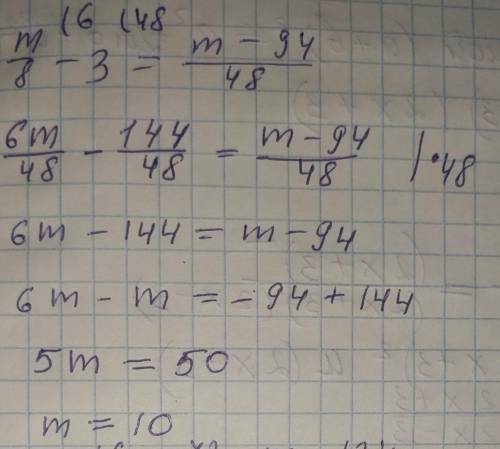 (6 (48
m/8 - 3 = (m - 94)/48
6m/48 - 144/48 = (m - 94)/48 | · 48
6m - 144 = m - 94
6m - m = - 94 + 144
5m = 50
m = 10